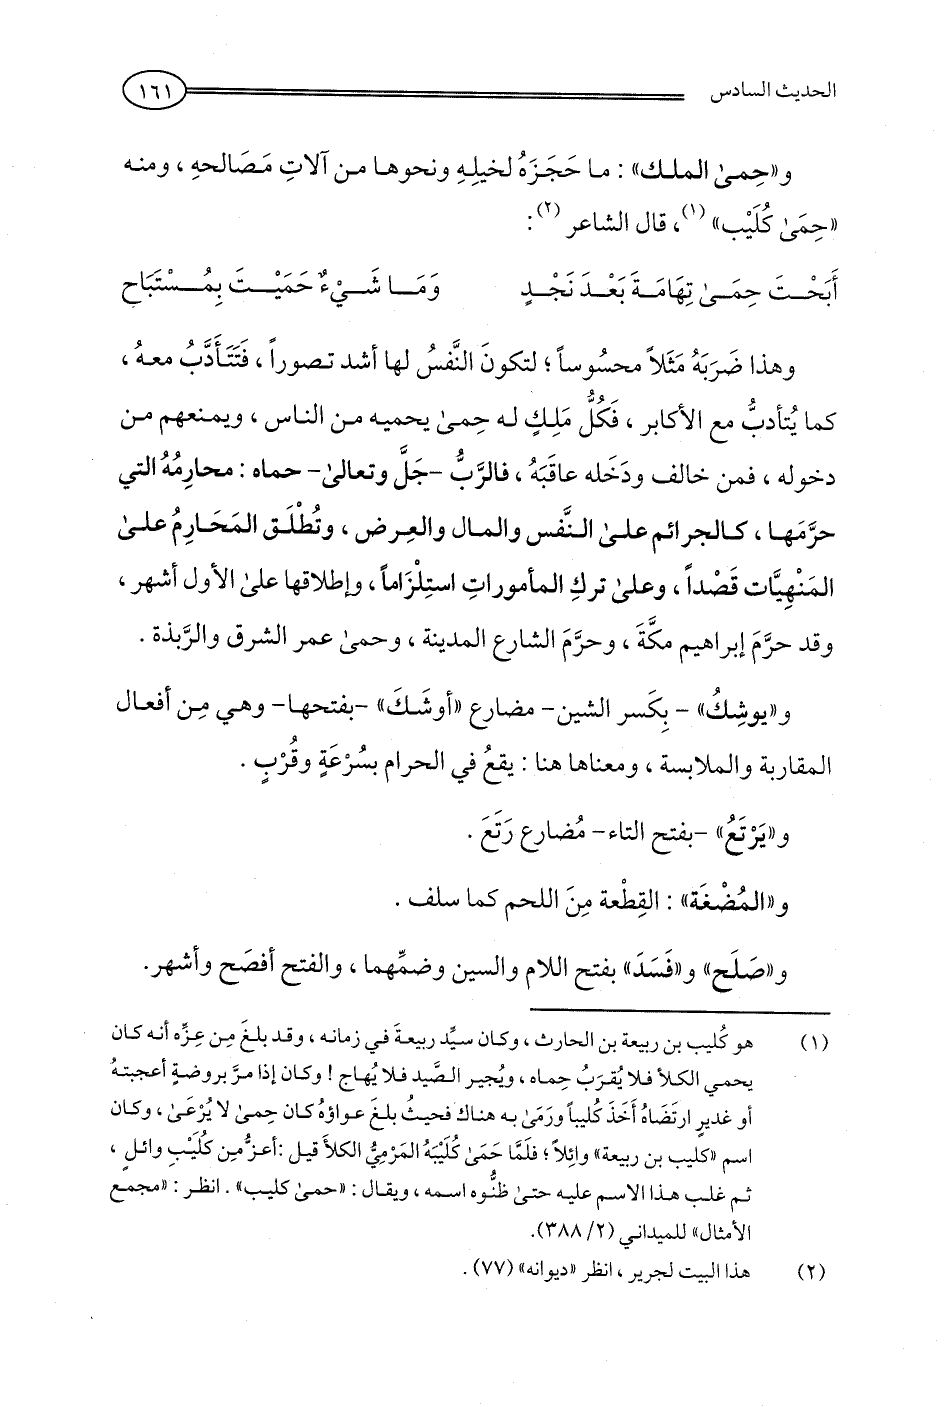 الحديث السادس ١٦١
و«حِمىٰ الملك» : ما حَجَزَهُ لخيلِهِ ونحوها من آلاتِ مَصَالحهِ ، ومنه
«حِمَىٰ كُلَيْب» (١)، قال الشاعر (٢):
أَبَحْتَ حِمَىٰ تِهَامَةَ بَعْدَ نَجْدٍ وَمَا شَيْءٌ حَمَيْتَ بِمُسْتَبَاحِ
وهذا ضَرَبَهُ مَثَلاً محسُوساً ؛ لتكونَ النَّفسُ لها أشد تصوراً ، فَتَتَأدَّبُ معهُ ،
كما يُتأدبُّ مع الأكابر ، فَكُلُّ مَلِكٍ له حِمىٰ يحميه من الناس ، ويمنعهم من
دخوله ، فمن خالف ودَخَله عاقَبَهُ ، فالرَّبُّ -جَلَّ وتعالىٰ- حماه : محارِمُهُ التي
حرَّمَها ، كالجرائم علىٰ النَّفس والمال والعِرض ، وتُطْلَق المَحَارِمُ علىٰ
المَنْهِيَّات قَصْداً ، وعلىٰ تركِ المأموراتِ استِلْزَاماً ، وإطلاقها علىٰ الأول أشهر ،
وقد حرَّمَ إبراهيم مكَّةَ ، وحرَّمَ الشارع المدينة ، وحمىٰ عمر الشرق والرَّبذة .
و«يوشِكُ» - بِكَسر الشين- مضارع «أوشَكَ» -بفتحها- وهي مِن أفعال
المقاربة والملابسة ، ومعناها هنا : يقعُ في الحرام بسُرْعَةٍ وقُرْبٍ .
و«يَرْتَعُ» -بفتح التاء- مُضارع رَتَعَ .
و«المُضْغَة» : القِطْعة مِنَ اللحم كما سلف .
و«صَلَح» و«فَسَدَ» بفتح اللام والسين وضمِّهما ، والفتح أفصَح وأشهر.
(١) هو كُليب بن ربيعة بن الحارث ، وكان سيِّد ربيعةَ في زمانه ، وقد بلغَ مِن عِزِّه أنه كان
يحمي الكلأ فلا يُقرَبُ حِماه ، ويُجير الصَّيد فلا يُهاج ! وكان إذا مرَّ بروضةٍ أعجبتهُ
أو غديرٍ ارتضَاهُ أخَذَ كُليباً ورَمَىٰ به هناك فحيثُ بلغَ عواؤهُ كان حِمىٰ لا يُرْعَىٰ ، وكان
اسم «كليب بن ربيعة» وائِلاً ؛ فلَمَّا حَمَىٰ كُلَيْبَهُ المَرْمِيُّ الكلأَ قيل :أعزُّ من كُلَيْبِ وائلٍ ،
ثم غلب هذا الاسم عليه حتىٰ ظنُّوه اسمه ، ويقال : «حمىٰ كليب» . انظر : «مجمع
الأمثال» للميداني (٢/ ٣٨٨).
(٢) هذا البيت لجرير ، انظر «ديوانه» (٧٧) .